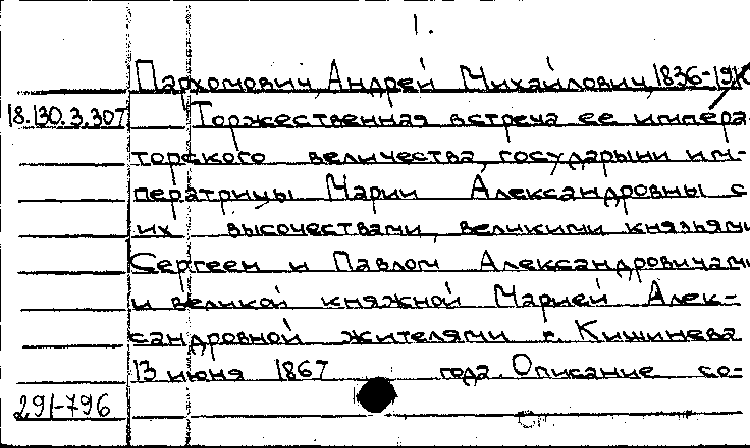 1.
Пархомович, Андрей Михайлович, 1836-
18.130.3.307 Торжественная встреча ее импера-
торского величества, государыни им-
ператрицы Марии Александровны с
их высочествами, великими князьями
Сергеем и Павлом Александровичами
и великой княжной Марией Алек-
сандровной жителями г. Кишинева
13 июня 1867 года. Описание со-
291-796